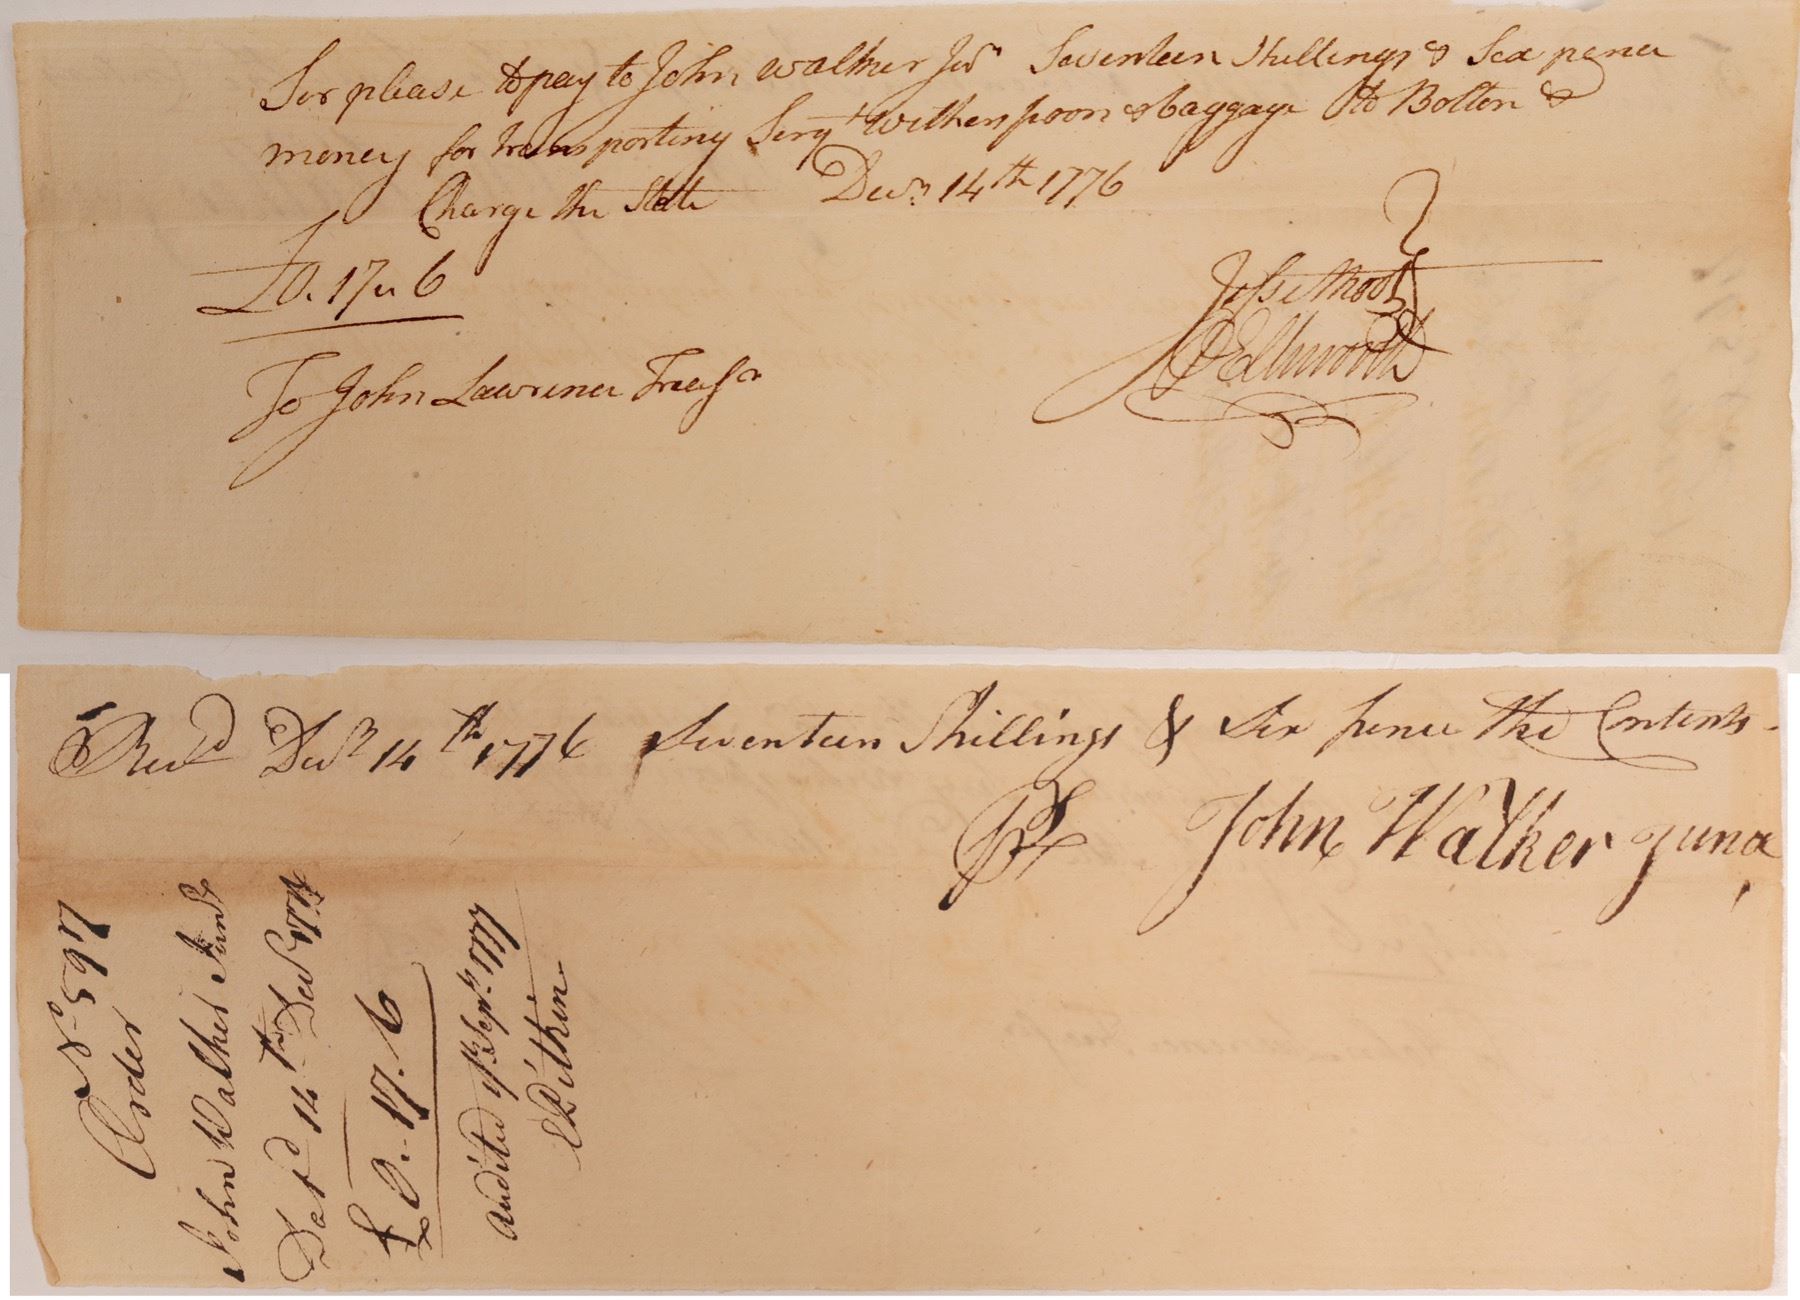 Sir please to pay to John Walker Junr Seventeen Shillings & Six pence
money for transporting Sergt Witherspoon & baggage to Bolton &
Charge the State Decr 14th 1776
£0.17"6
Jesse Root
O Ellsworth
To John Lawrence Treasr
Recd Decr 14th 1776 Seventeen Shillings & Six pence the Contents
Pr John Walker Junr
No 597
Order
John Walker Junr
Datd 14th Decr 1776
£0.17.6
Audited Sept. 1777
E Pitkin